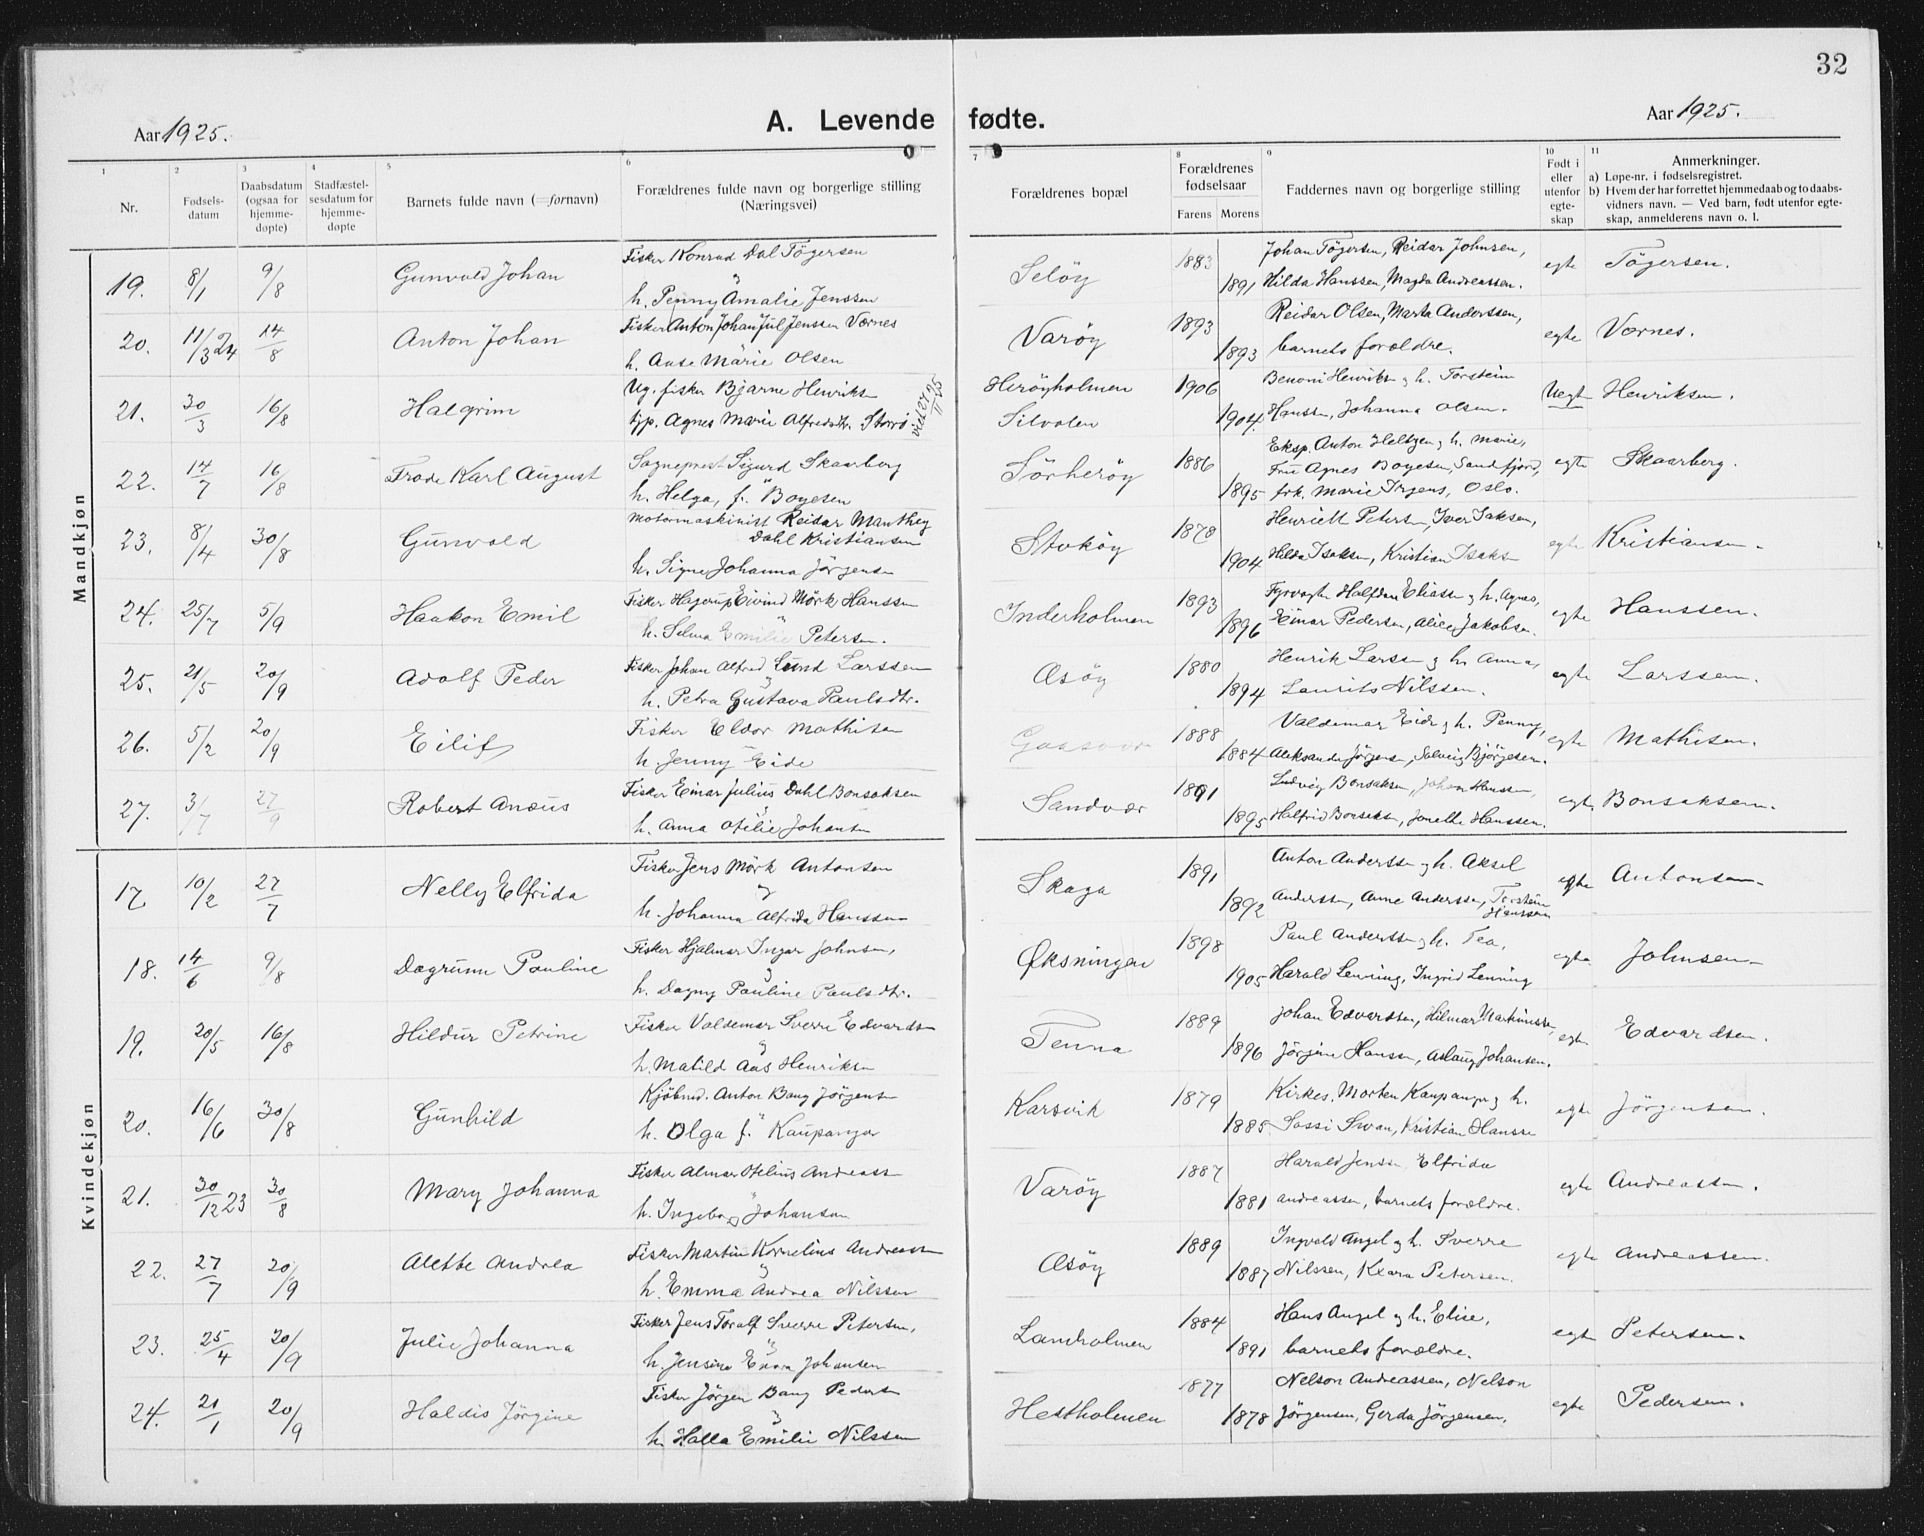 32
Aar 1925.
A. Levende fødte.
Aar 1925.
1 2 3 4 5 6 7 8 9 10 11
Nr.
Fødsels-
datum
Daabsdatum
(ogsaa for
hjemme-
døpte)
Stadfæstel-
sesdatum for
hjemme-
døpte
Barnets fulde navn (=fornavn)
Forældrenes fulde navn og borgerlige stilling
(Næringsvei)
Forældrenes bopæl
Forældrenes
fødselsaar
Farens Morens
Faddernes navn og borgerlige stilling
Født i
eller
utenfor
egte-
skap
Anmerkninger.
a) Løpe-nr. i fødselsregistret.
b) Hvem der har forrettet hjemmedaab og to daabs-
vidners navn. — Ved barn, født utenfor egte-
skap, anmelderens navn o. l.
Mandkjøn
19. 8/1 9/8 Gunvald Johan
Fisker Konrad Dal Tögersen
h. Penny Amalie Jenssen
Selöy 1883 1891
Johan Tögersen, Reidar Johnsen,
Hilda Hanssen, Magda Andreassen.
egte Tögersen.
20. 11/3 24 14/8 Anton Johan
Fisker Anton Johan Jul Jenssen Værnes
h. Anse Marie Olsen
Varöy 1893 1893
Reidar Olsen, Marta Anderssen,
barnets forældre.
egte Værnes.
21. 30/3 16/8 Halgrim
Ug. fisker Bjarne Henriks
tjp. Agnes Marie Alfredsdtr. Storrö
viet 27/11 25
Heröyholmen
Silvalen
1906 1904
Benoni Henriks og h. Torstein
Hanssen, Johanna Olsen.
Uegt Henriksen.
22. 14/7 16/8 Frode Karl August
Sogneprest Sigurd Skaarberg
h. Helga, f. Boyesen
Sörheröy 1886 1895
Eksp. Anton Heltzen og h. Marie,
Fru Agnes Boyesen, Sandfjord,
frk. Marie Irgens, Oslo.
egte Skaarberg.
23. 8/4 30/8 Gunvald
Motormaskinist Reidar Manthey
Dahl Kristiansen
h. Signe Johanna Jörgensen
Stoköy 1878 1904
Henriett Petersen, Iver Isaksen,
Hilda Isaksen, Kristian Isaks
egte Kristiansen.
24. 25/7 5/9 Haakon Emil
Fisker Hagerup Eivind Mörk Hanssen
h. Selma Emilie Petersen.
Inderholmen 1893 1896
Fyrvogter Halfdan Eliass og h. Agnes,
Einar Pedersen, Alice Jakobsen.
egte Hanssen.
25. 21/5 20/9 Adolf Peder
Fisker Johan Alfred Lund Larssen
h. Petra Gustava Paulsdtr.
Æsöy 1880 1894
Henrik Larsen og h. Anna,
Laurits Nilssen.
egte Larssen.
26. 5/2 20/9 Eilif
Fisker Eldor Mathisen
h. Jenny Eide
Gaasvær 1888 1884
Valdemar Eide og h. Penny,
Aleksander Jörgensen, Solveig Bjørgesen.
egte Mathisen.
27. 3/7 27/9 Robert Anæus
Fisker Einar Julius Dahl Bonsaksen
h. Anna Otilie Johansen
Sandvær 1891 1895
Ludvig Bonsaksen, Johan Hanssen,
Halfrid Bonsaksen, Jenette Hanssen.
egte. Bonsaksen.
Kvindekjøn
17. 10/2 27/7 Nelly Elfrida
Fisker Jens Mörk Antonsen
og
h. Johanna Alfrida Hanssen
Skaga 1891 1892
Anton Anderssen og h. Aksel
Anderssen, Anne Anderssen, Torstein
Hanssen
egte Antonsen.
18. 14/6 9/8 Dagrunn Pauline
Fisker Hjalmar Ingar Johnsen,
og
h. Dagny Pauline Paulsdtr.
Øksningen 1898 1905
Paul Anderssen og h. Tea,
Harald Lenning, Ingrid Lenning
egte Johnsen.
19. 20/5 16/8 Hildur Petrine
Fisker Valdemar Sverre Edvardsen
og
h. Matild Aas Henriksen
Tenna 1889 1896
Johan Edvardsen, Hilmar Martinussen,
Jörgine Hanssen, Aslaug Johansen.
egte Edvardsen.
20. 16/6 30/8 Gunhild
Kjöbmd. Anton Bang Jörgensen
h. Olga f. Kaupanger
Karsvik 1879 1885
Kirkes. Morten Kaupanger og h.
Sossi Swan, Kristian Hanssen
egte Jörgensen.
21. 30/12 23 30/8 Mary Johanna
Fisker Almar Otelius Andreassen
h. Ingeborg Johansen
Varöy 1887 1881
Harald Jenssen, Elfrida
Andreassen, barnets forældre.
egte Andreassen.
22. 27/7 20/9 Alette Andrea
Fisker Martin Kornelius Andreassen
og
h. Emma Andrea Nilssen
Æsöy 1889 1887
Ingvald Angel og h. Sverre
Nilssen, Klara Petersen.
egte Andreassen.
23. 25/4 20/9 Julie Johanna
Fisker Jens Toralf Sverre Petersen,
h. Jensine Enora Johansen
Lamholmen 1884 1891
Hans Angel og h. Elise,
barnets forældre.
egte Petersen.
24. 21/1 20/9 Haldis Jörgine
Fisker Jörgen Bang Pedersen
og
h. Halla Emilie Nilssen
Hestholmen 1877 1878
Nelson Andreassen, Nelson
Jörgensen, Gerda Jörgensen,
egte Pedersen.